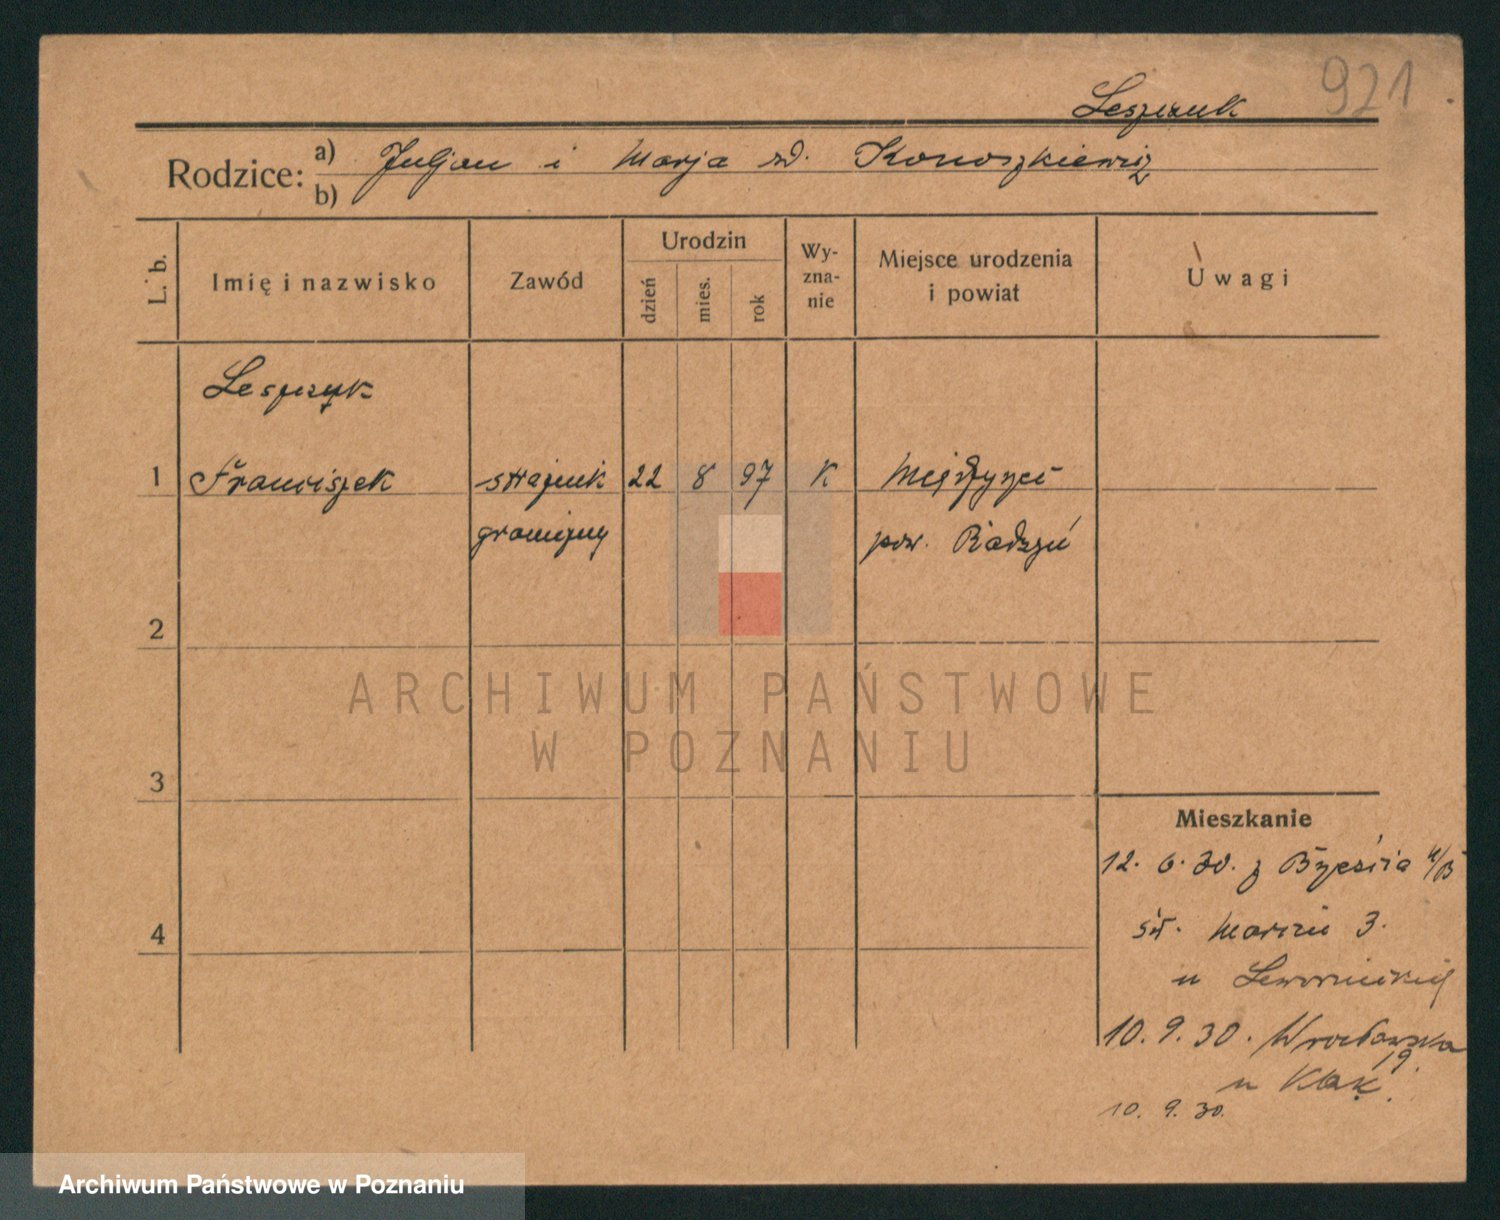 921
Leszczuk
Rodzice: a) Juljan i Marja zd. Konoszkiewicz
b)
L. b.
Imię i nazwisko
Zawód
Urodzin
dzień
mies.
rok
Wy-
zna-
nie
Miejsce urodzenia
i powiat
Uwagi
Leszczyk
1 Franciszek strażnik 22 8 97 K Międzyrzec
graniczny pow. Radzyń
2
3
4
Mieszkanie
12. 6. 30. z Brześcia n/B
św. Marcin 3.
u
10. 9. 30. Wrocławska
19.
u Klak.
10. 9. 30.
ARCHIWUM PAŃSTWOWE
W POZNANIU
Archiwum Państwowe w Poznaniu